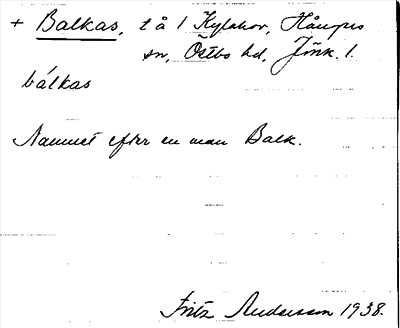 + Balkas, t å 1 Kylahov, Hånges
sn, Östbo hd, Jönk. l.
bálkas
Namnet efter en man Balk.
Fritz Andersson 1938.